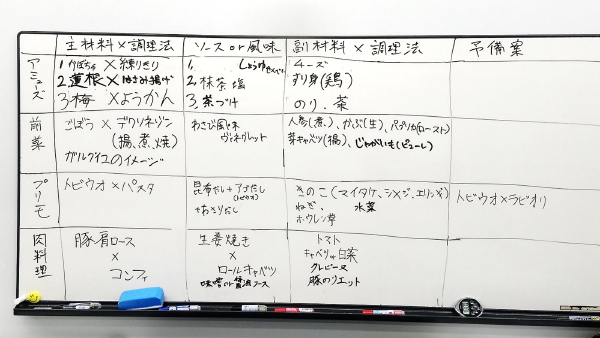 主材料×調理法
ソース or 風味
副材料×調理法
予備案
アミューズ
1.かぼちゃ×練りきり
2.蓮根×はさみ揚げ
3.梅×ようかん
1. しょうゆせんべい
2.抹茶塩
3.茶づけ
チーズ
すり身(鶏)
のり・茶
前菜
ごぼう×デクリネゾン
(揚、煮、焼)
ガルグイユのイメージ
わさび風味
ヴィネグレット
人参(煮)、かぶ(生)、パプリカ(ロースト)
芽キャベツ(揚)、じゃがいも(ピューレ)
プリモ
トビウオ×パスタ
昆布だし+アゴだし
(トビウオ)
+あさりだし
きのこ(マイタケ、シメジ、エリンギ)
ねぎ、 水菜
ホウレン草
トビウオ×ラビオリ
肉料理
豚肩ロース
×
コンフィ
生姜焼き
×
ロールキャベツ
味噌 or 醤油ソース
トマト
キャベツ or 白菜
クレピーヌ
豚のリエット